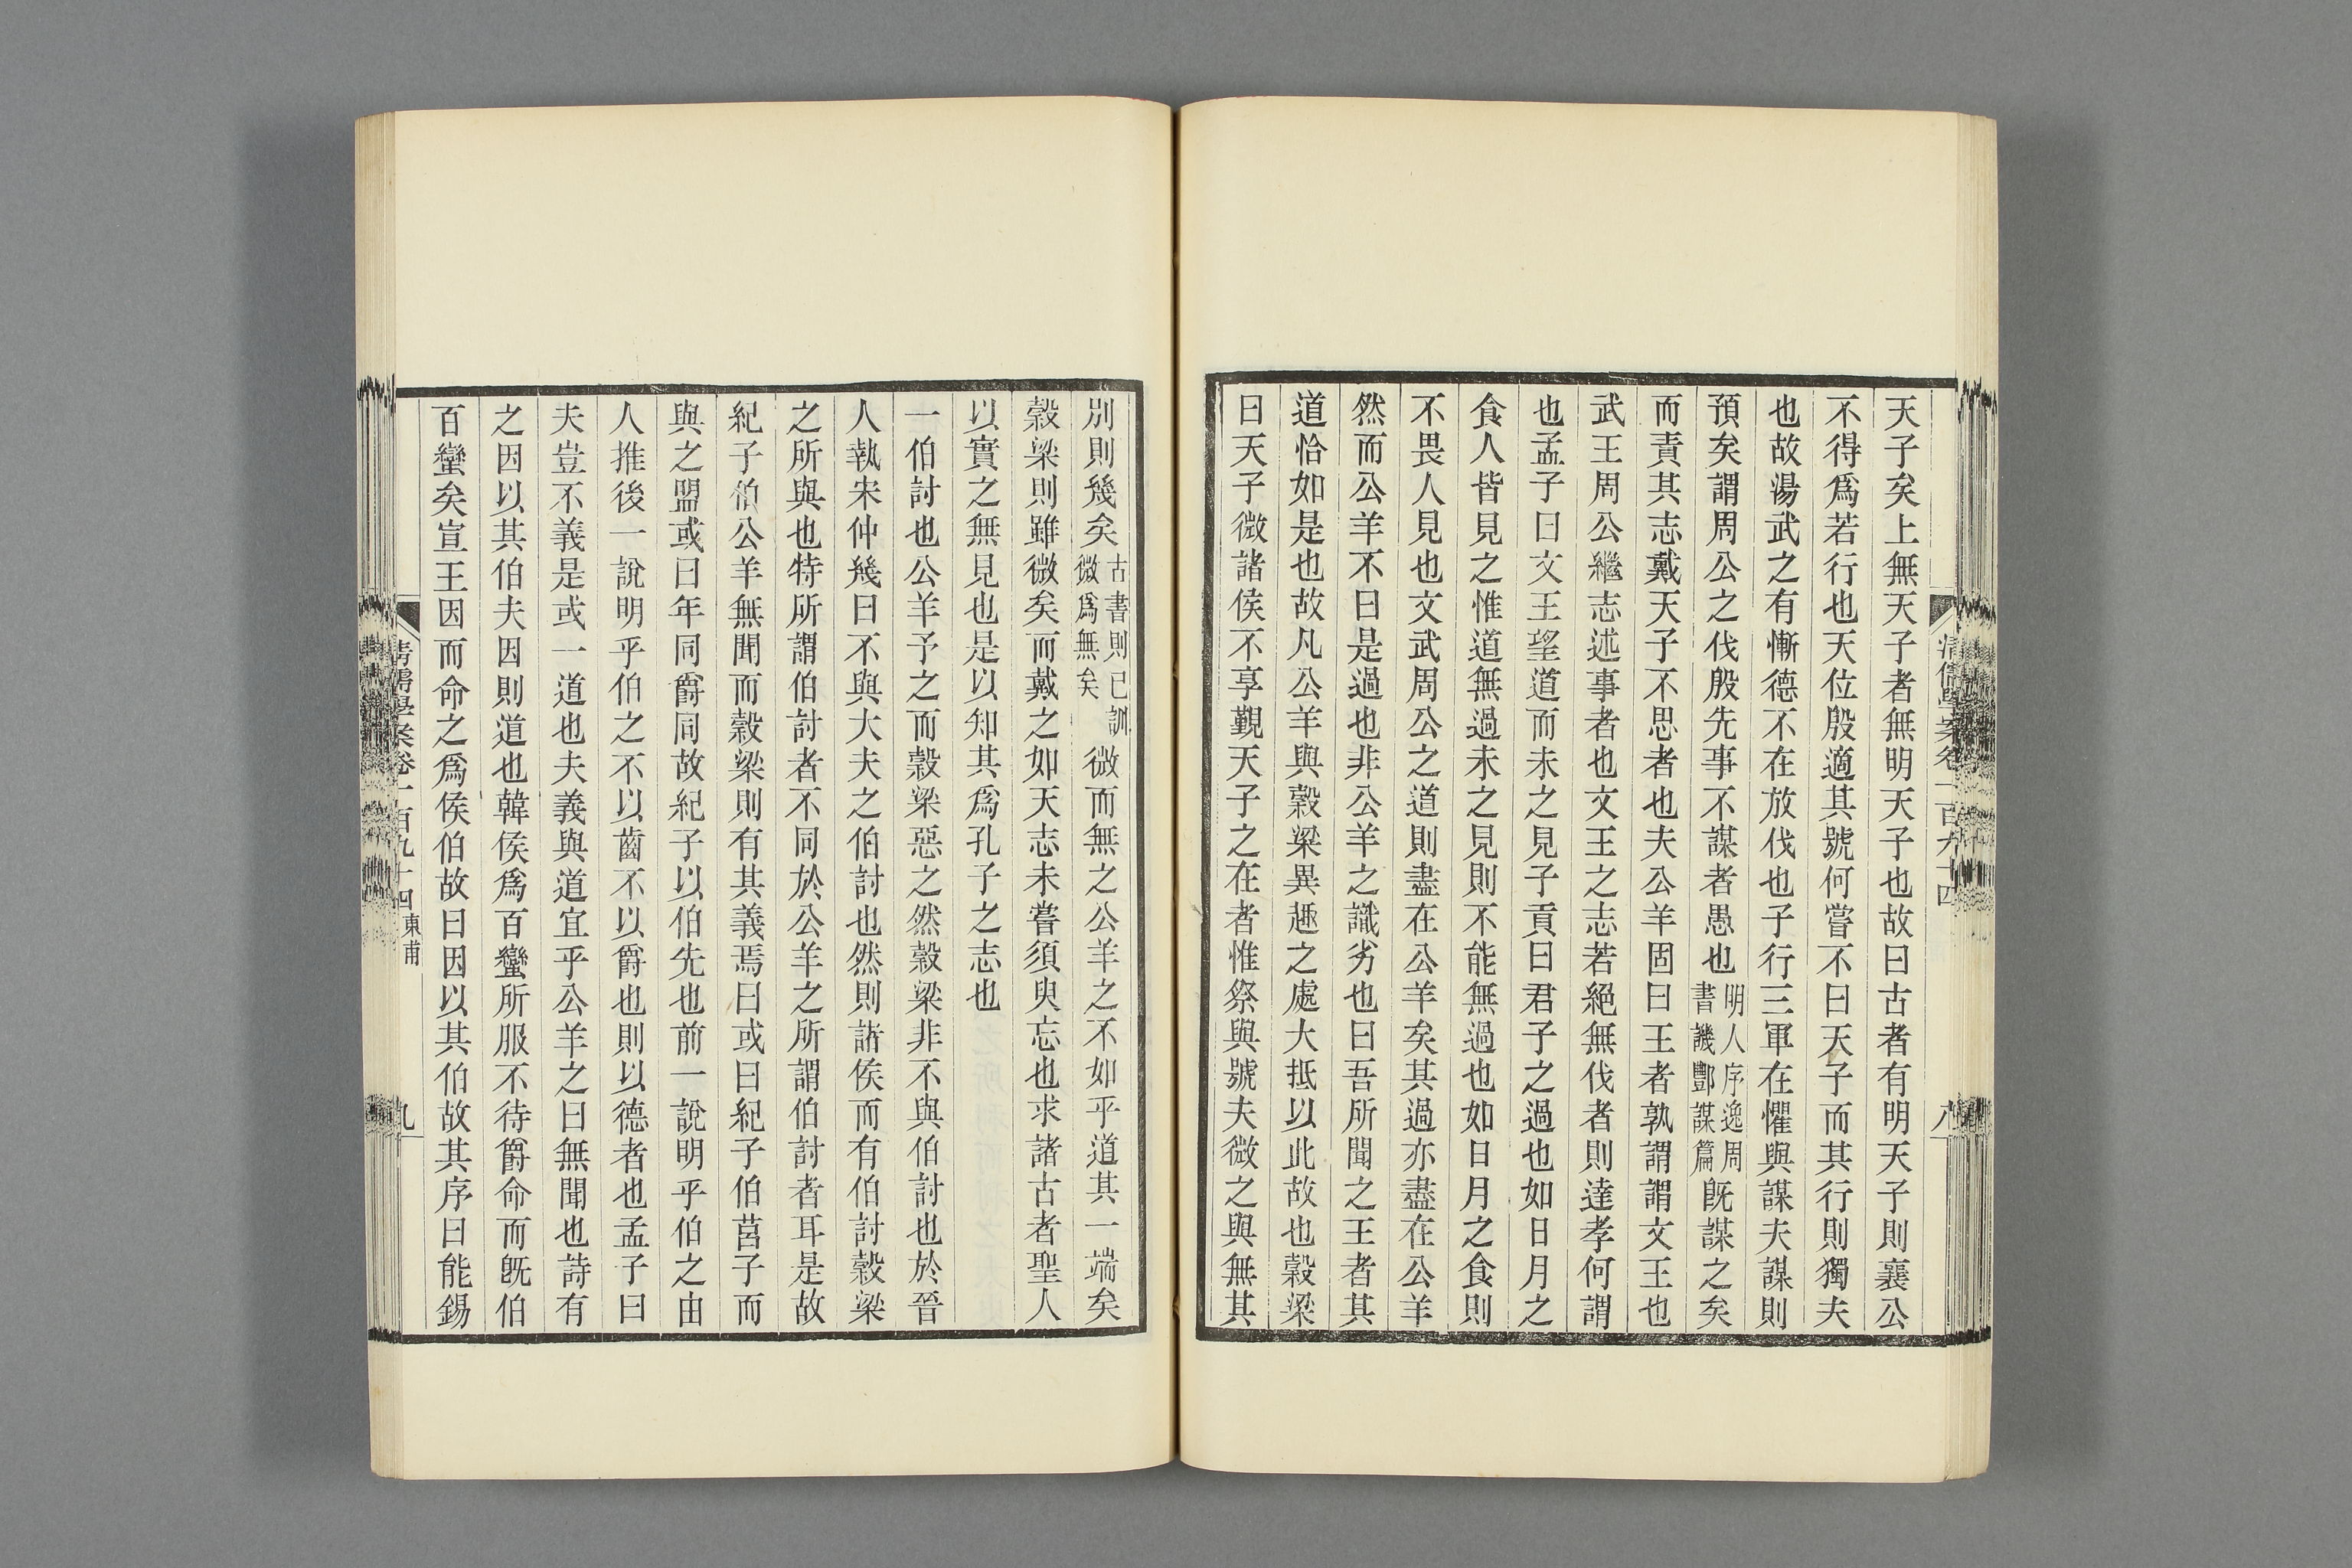 天子矣上無天子者無明天子也故曰古者有明天子則襄公
不得爲若行也天位殷適其號何嘗不曰天子而其行則獨夫
也故湯武之有慚德不在放伐也子行三軍在懼與謀夫謀則
預矣謂周公之伐殷先事不謀者愚也明人序逸周書譏酆謀篇旣謀之矣
而責其志戴天子不思者也夫公羊固曰王者孰謂謂文王也
武王周公繼志述事者也文王之志若絕無伐者則達孝何謂
也孟子曰文王望道而未之見子貢曰君子之過也如日月之
食人皆見之惟道無過未之見則不能無過也如日月之食則
不畏人見也文武周公之道則盡在公羊矣其過亦盡在公羊
然而公羊不曰是過也非公羊之識劣也曰吾所聞之王者其
道恰如是也故凡公羊與穀梁異趣之處大抵以此故也穀梁
曰天子微諸侯不享覲天子之在者惟祭與號夫微之與無其
清儒學案卷一百九十四
八
別則幾矣古書則已訓微爲無矣微而無之公羊之不如乎道其一端矣
穀梁則雖微矣而戴之如天志未嘗須臾忘也求諸古者聖人
以實之無見也是以知其爲孔子之志也
一伯討也公羊予之而穀梁惡之然穀梁非不與伯討也於晉
人執宋仲幾曰不與大夫之伯討也然則諸侯而有伯討穀梁
之所與也特所謂伯討者不同於公羊之所謂伯討者耳是故
紀子伯公羊無聞而穀梁則有其義焉曰或曰紀子伯莒子而
與之盟或曰年同爵同故紀子以伯先也前一說明乎伯之由
人推後一說明乎伯之不以齒不以爵也則以德者也孟子曰
夫豈不義是或一道也夫義與道宜乎公羊之曰無聞也詩有
之因以其伯夫因則道也韓侯爲百蠻所服不待爵命而旣伯
百蠻矣宣王因而命之爲侯伯故曰因以其伯故其序曰能錫
清儒學案卷一百九十四 東甫
九